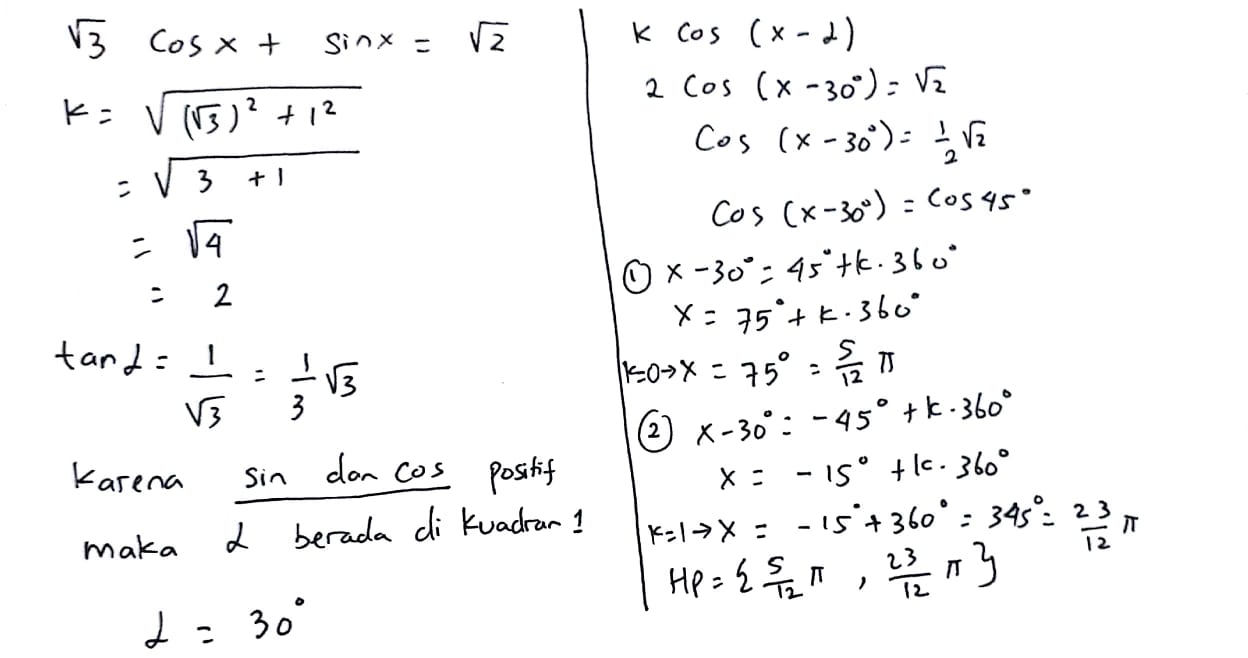 √3 cos x + sin x = √2
k = √((√3)² + 1²)
= √(3 + 1)
= √4
= 2
tan α = 1/√3 = 1/3 √3
Karena sin dan cos positif
maka α berada di kuadran 1
α = 30°
k cos (x - α)
2 cos (x - 30°) = √2
cos (x - 30°) = 1/2 √2
cos (x - 30°) = cos 45°
① x - 30° = 45° + k . 360°
x = 75° + k . 360°
k=0→x = 75° = 5/12 π
② x - 30° = -45° + k . 360°
x = -15° + k . 360°
k=1→x = -15° + 360° = 345° = 23/12 π
HP = {5/12 π , 23/12 π}